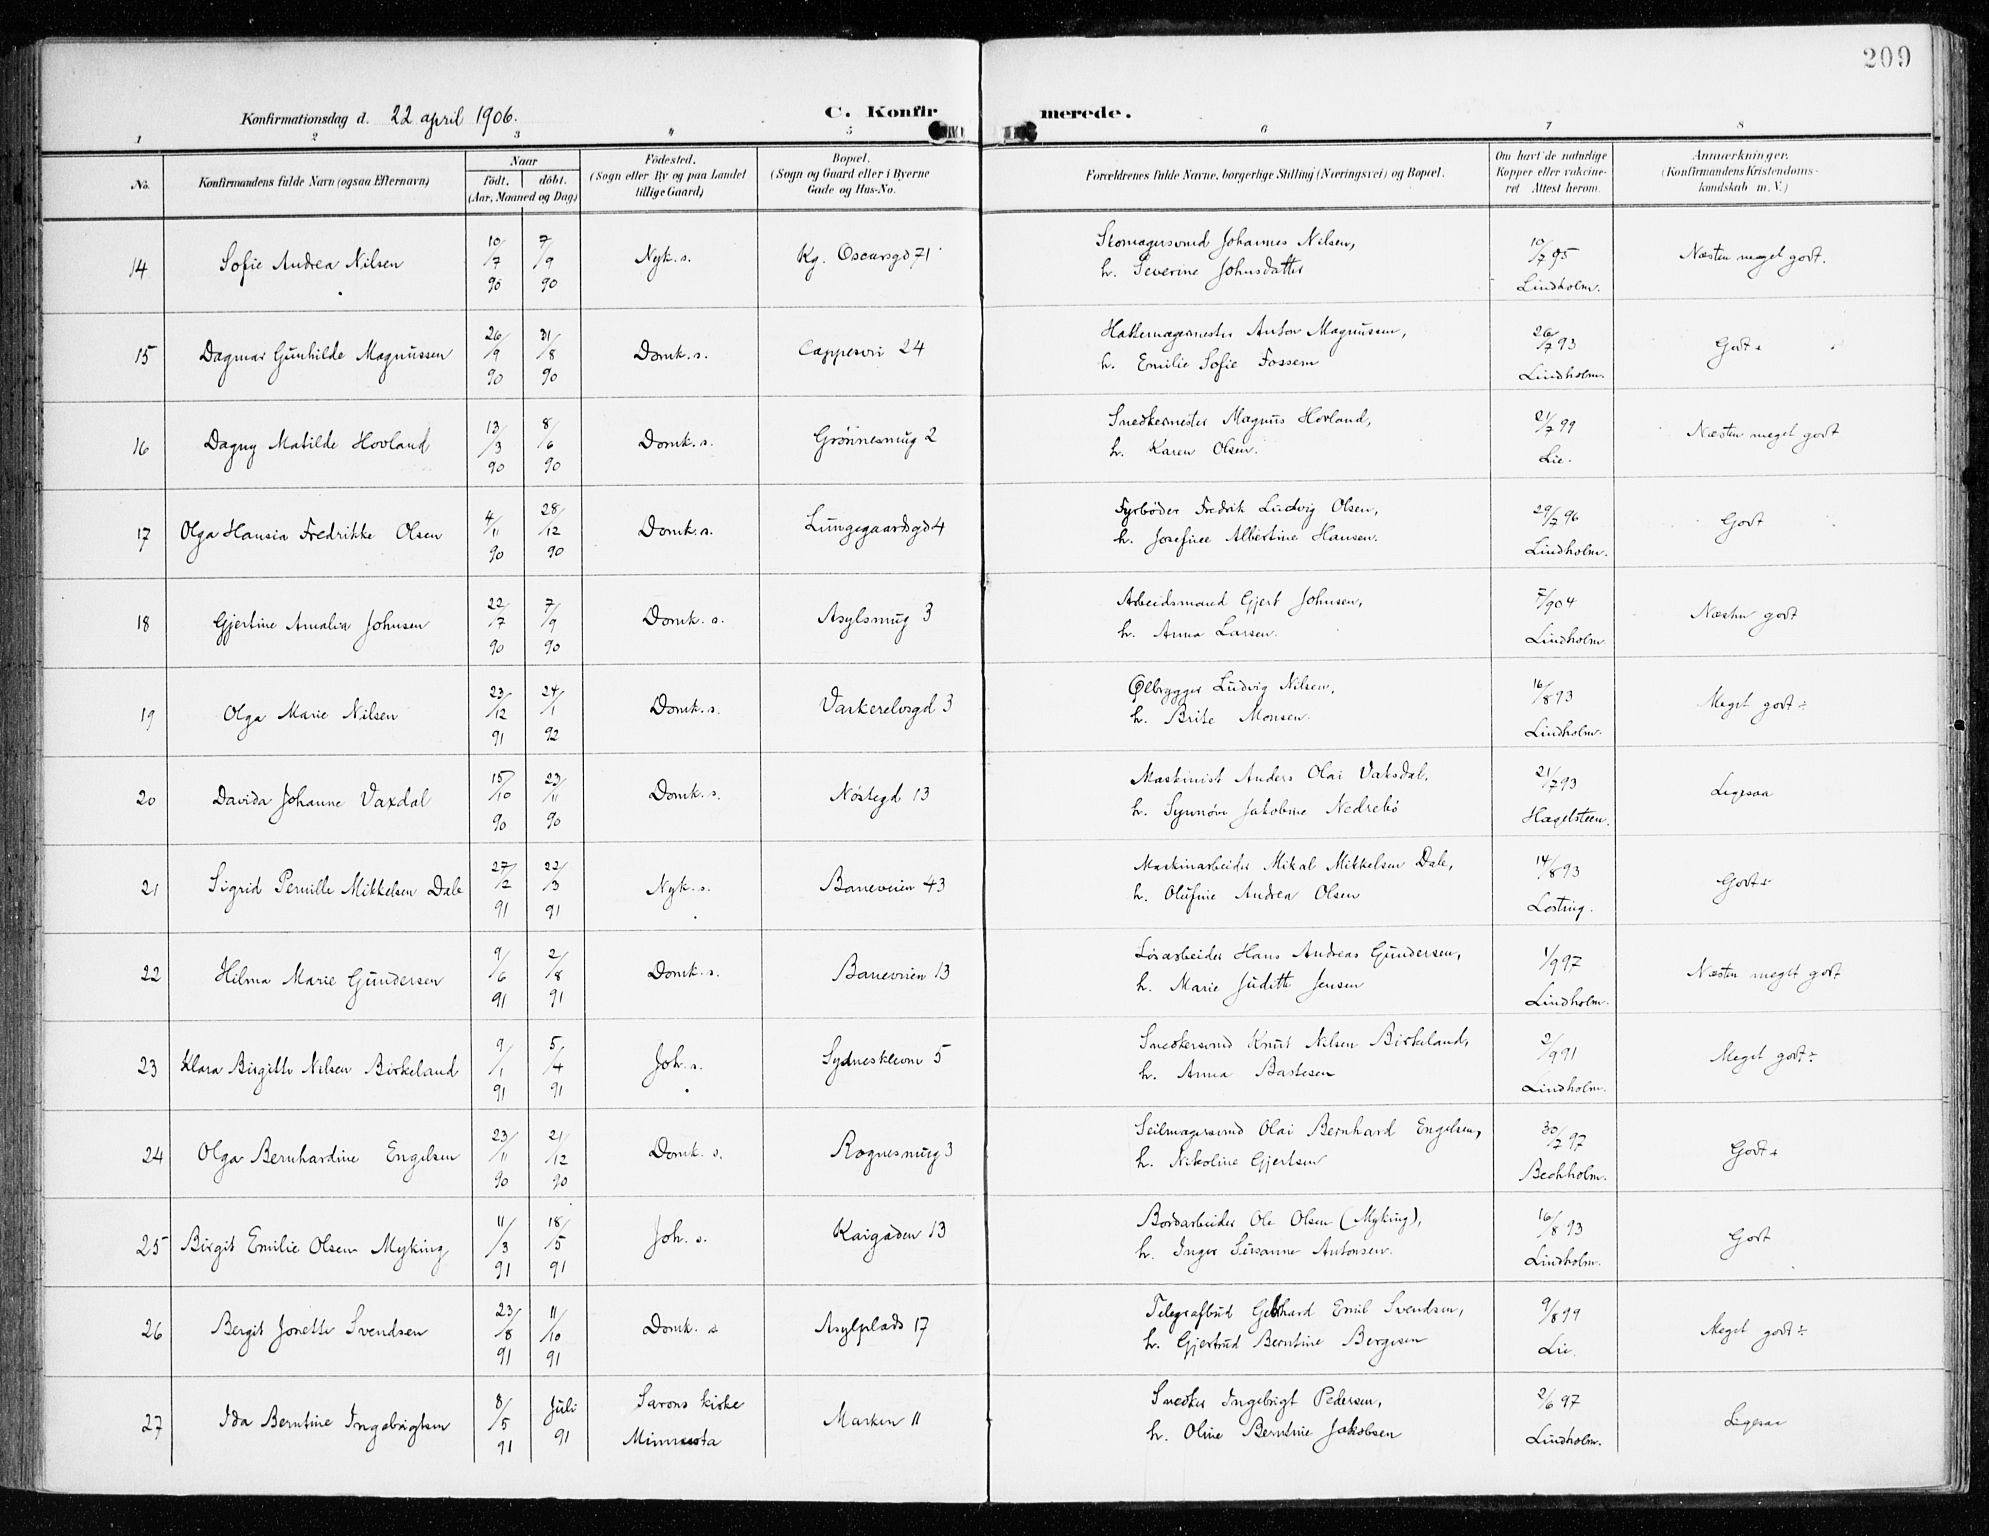 209
Konfirmationsdag d. 22 april 1906.
C. Konfirmerede.
1 2 3 4 5 6 7 8
No.
Konfirmandens fulde Navn (ogsaa Efternavn)
Naar
født. døbt.
(Aar, Maaned og Dag)
Fødested.
(Sogn eller By og paa Landet
tillige Gaard)
Bopæl.
(Sogn og Gaard eller i Byerne
Gade og Hus-No.
Forældrenes fulde Navne, borgerlige Stilling (Næringsvei) og Bopæl.
Om havt de naturlige
Kopper eller vakcine-
ret Attest herom.
Anmærkninger.
(Konfirmandens Kristendoms-
kundskab m. V.)
14 Sofie Andrea Nilsen 10/7 90 7/9 90 Nyk. s. Kg. Oscarsgd 71 Skomagersvend Johannes Nilsen,
h. Severine Johnsdatter 10/7 95 Lindholm. Næsten meget godt.
15 Dagmar Gunhilde Magnussen 26/9 90 31/8 90 Domk. s. Cappesvei 24 Hattemagermester Anton Magnussen,
h. Emilie Sofie Fossem 26/7 93 Lindholm. Godt +
16 Dagny Matilde Hovland 13/3 90 8/6 90 Domk. s. Grønnesmug 2 Snedkermester Magnus Hovland,
h. Karen Olsen. 21/7 99 Lie. Næsten meget godt
17 Olga Hansia Fredrikke Olsen 4/11 90 28/12 90 Domk. s. Lungegaardsgd 4 Fyrbøder Fredrik Ludvig Olsen,
h. Josefine Albertine Hansen. 29/7 96 Lindholm. Godt
18 Gjertine Amalia Johnsen 22/7 90 7/9 90 Domk. s. Asylsmug 3 Arbeidsmand Gjert Johnsen,
h. Anna Larsen. 7/9 04 Lindholm. Næsten godt
19 Olga Marie Nilsen 23/12 91 24/1 92 Domk. s. Vaskerelvsgd 3 Ølbrygger Ludvig Nilsen,
h. Brite Monsen. 16/8 93 Lindholm. Meget godt ÷
20 Davida Johanne Vaxdal 15/10 90 23/11 90 Domk. s. Nøstegd 13 Maskinist Anders Olai Vaksdal,
h. Synnøve Jakobine Nedrebø 21/7 93 Hagelsteen. Ligesaa
21 Sigrid Pernille Mikkelsen Dale 27/2 91 22/3 91 Nyk. s. Baneveien 43 Maskinarbeider Mikal Mikkelsen Dale,
h. Olufine Andrea Olsen 14/8 93 Losting. Godt +
22 Hilma Marie Gundersen 9/6 91 2/8 91 Domk. s. Baneveien 13 Løsarbeider Hans Andreas Gundersen,
h. Marie Judith Jensen 1/9 97 Lindholm. Næsten meget godt
23 Klara Birgitte Nilsen Birkeland 9/1 91 5/4 91 Joh. s. Sydneskleven 5 Snedkersvend Knut Nilsen Birkeland,
h. Anna Bastesen 2/9 91 Lindholm. Meget godt ÷
24 Olga Bernhardine Engelsen 23/11 90 21/12 90 Domk. s. Rognesmug 3 Seilmagersvend Olai Bernhard Engelsen,
h. Nikoline Gjertsen 30/7 97 Bechholm. Godt +
25 Birgit Emilie Olsen Myking 11/3 91 18/5 91 Joh. s. Kaigaden 13 Bordarbeider Ole Olsen (Myking),
h. Inger Susanne Antonsen. 16/8 93 Lindholm. Godt
26 Bergit Jonette Svendsen 23/8 91 11/10 91 Domk. s Asylplads 17 Telegrafbud Gebhard Emil Svendsen,
h. Gjertrud Berntine Bergesen 9/8 99 Lie. Meget godt ÷
27 Ida Berntine Ingebrigtsen 8/5 91 Juli 91 Sarons kirke Minnesota Marken 11 Snedker Ingebrigt Pedersen,
h. Oline Berntine Jakobsen 2/6 97 Lindholm. Ligesaa